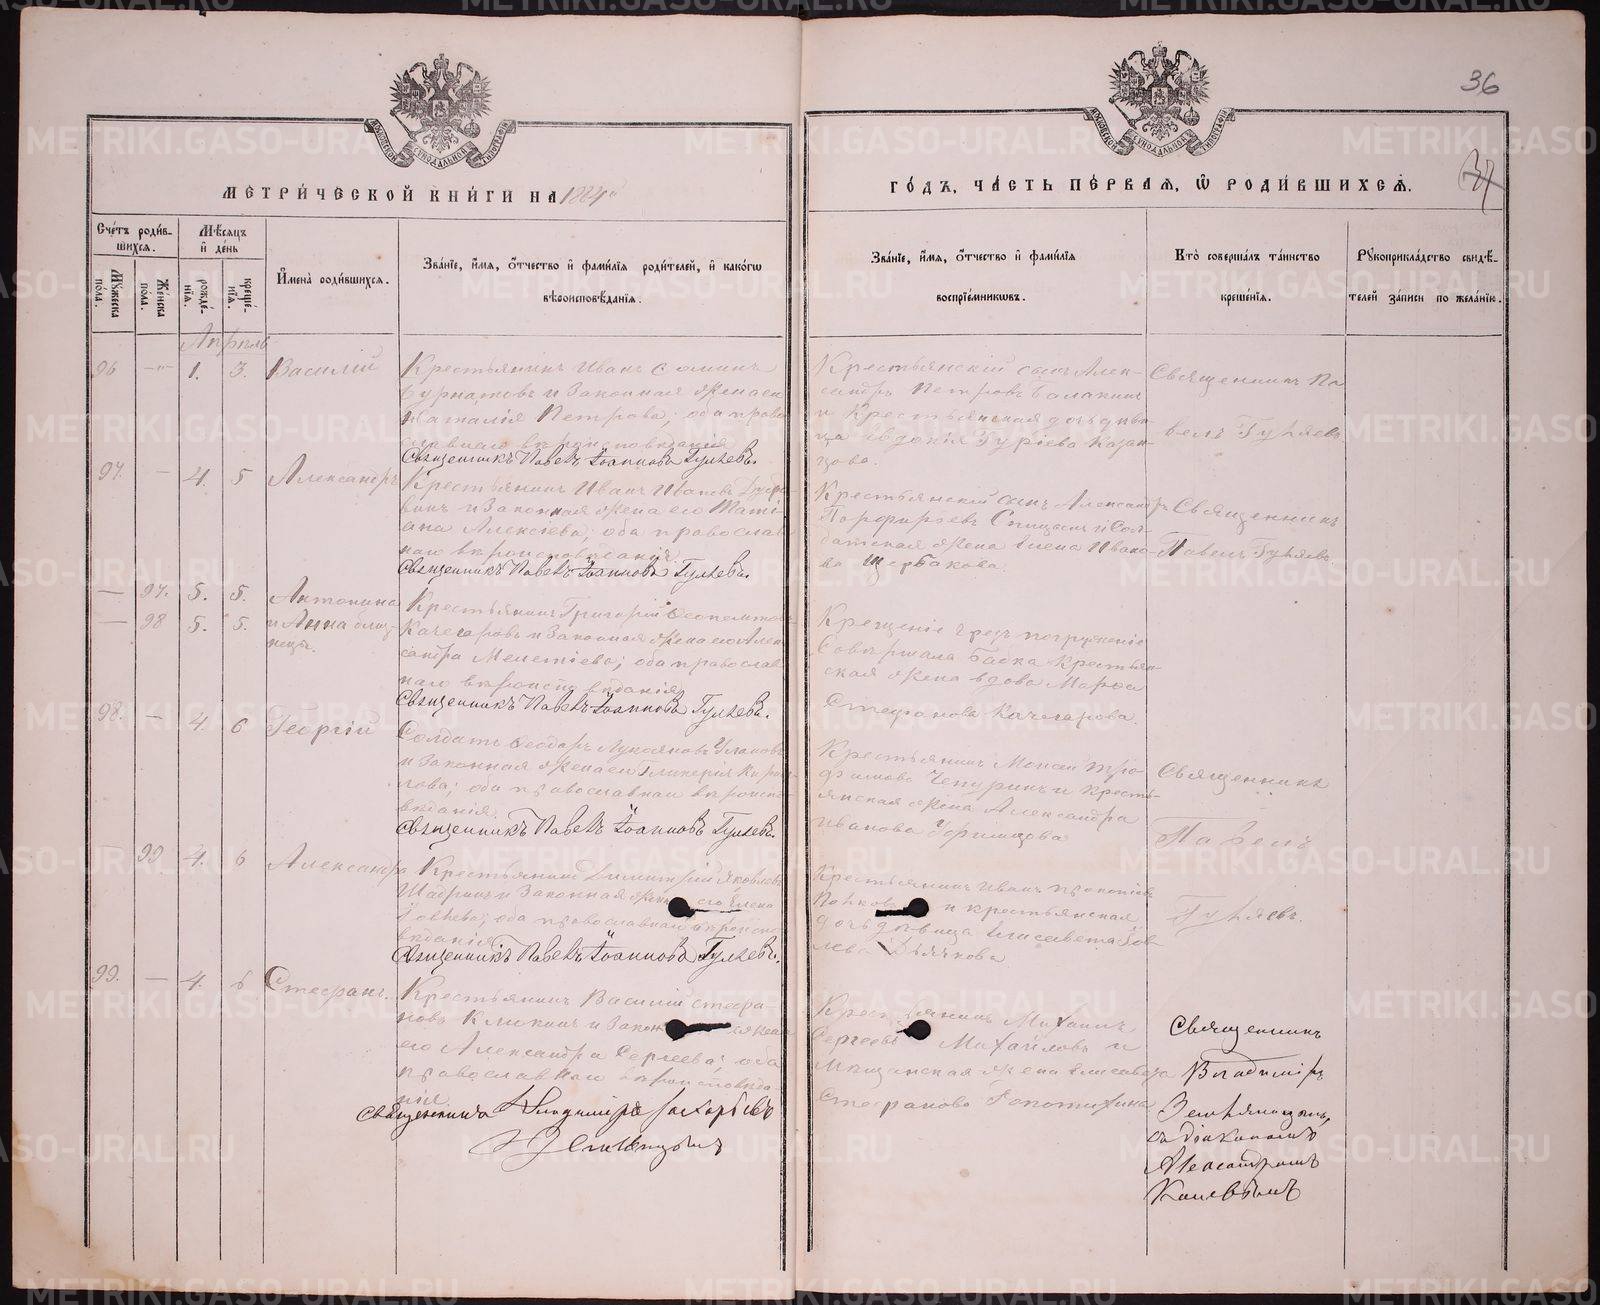 36
37
МЕТРИ́ЧЕСКОЙ КНИ́ГИ НА 1884
ГО́ДЪ, ЧА́СТЬ ПЕ́РВАЯ, Ѡ РОДИ́ВШИХСѦ.
Сче́тъ роди́в-
шихсѧ.
Мꙋжеска
по́ла.
Же́нска
по́ла.
Мѣ́сѧцъ
и҆ де́нь
рожде́-
нїѧ.
креще́-
нїѧ.
И҆мена̀ роди́вшихсѧ.
Зва́нїе, и҆́мѧ, ѻ҆́тчество и҆ фами́лїѧ роди́телей, и҆ како́гѡ
вѣроисповѣ́данїѧ.
Зва́нїе, и҆́мѧ, ѻ҆́тчество и҆ фами́лїѧ
воспрїе́мникѡвъ.
Кто̀ соверша́лъ та́инство
креще́нїѧ.
Рꙋкоприкла́дство свидѣ́-
телей за́писи по жела́нїю.
Апрѣль
96 — 1. 3. Василій
Крестьянинъ Иванъ
и законная жена его
Наталія Петрова; оба право-
славнаго вѣроисповѣданія
Священникъ Павелъ Іоанновъ Гуляевъ.
Крестьянскій сынъ Алек-
сандръ Петровъ Балакинъ
и Крестьянская дочь дѣви-
ца Евдокія Гуріева Казан-
цова.
Священникъ Па-
велъ Гуляевъ
97. — 4. 5 Александръ
Крестьянинъ Иванъ Ивановъ
и законная жена его Тати-
ана Алексіева; оба православ-
наго вѣроисповѣданія
Священникъ Павелъ Іоанновъ Гуляевъ.
Крестьянскій сынъ Александръ
Порфирьевъ Спицынъ и Сол-
датская жена Елена Ивано-
ва Щербакова.
Священникъ
Павелъ Гуляевъ
— 97. 5. 5. Антонина
— 98 5. 5. и Анна близ-
нецы.
Крестьянинъ Григорій
Качегаровъ и законная жена его Алек-
сандра Мелетіева; оба православ-
наго вѣроисповѣданія
Священникъ Павелъ Іоанновъ Гуляевъ.
Крещеніе чрезъ погруженіе
Совершала бабка Крестьян-
ская жена вдова Марѳа
Стефанова Качегарова.
98. — 4. 6 Георгій
Солдатъ Ѳеодоръ Лукояновъ
и законная жена его Гликерія Кирил-
лова; оба православнаго вѣроиспо-
вѣданія.
Священникъ Павелъ Іоанновъ Гуляевъ.
Крестьянинъ Моисей Тро-
фимовъ Чепуринъ и кресть-
янская жена Александра
Иванова
Священникъ
Павелъ
— 99 4. 6 Александра
Крестьянинъ Димитрій Яковлевъ
Шадринъ и законная жена его Елена
Іовлева; оба православнаго вѣроиспо-
вѣданія
Священникъ Павелъ Іоанновъ Гуляевъ.
Крестьянинъ Иванъ Прокопіевъ
и крестьянская
дочь дѣвица Елисавета Іов-
лева Дьячкова
Гуляевъ.
99. — 4. 6 Стефанъ.
Крестьянинъ Василій Стефа-
новъ Клюкинъ и законная жена
его Александра Сергеева; оба
православнаго вѣроисповѣда-
нія.
Священникъ Владиміръ Захаріевъ
Земляницынъ
Крестьянинъ Михаилъ
Сергеевъ Михайловъ и
Мѣщанская жена Елисавета
Стефанова
Священникъ
Владиміръ
Земляницынъ,
съ діакономъ
Александромъ